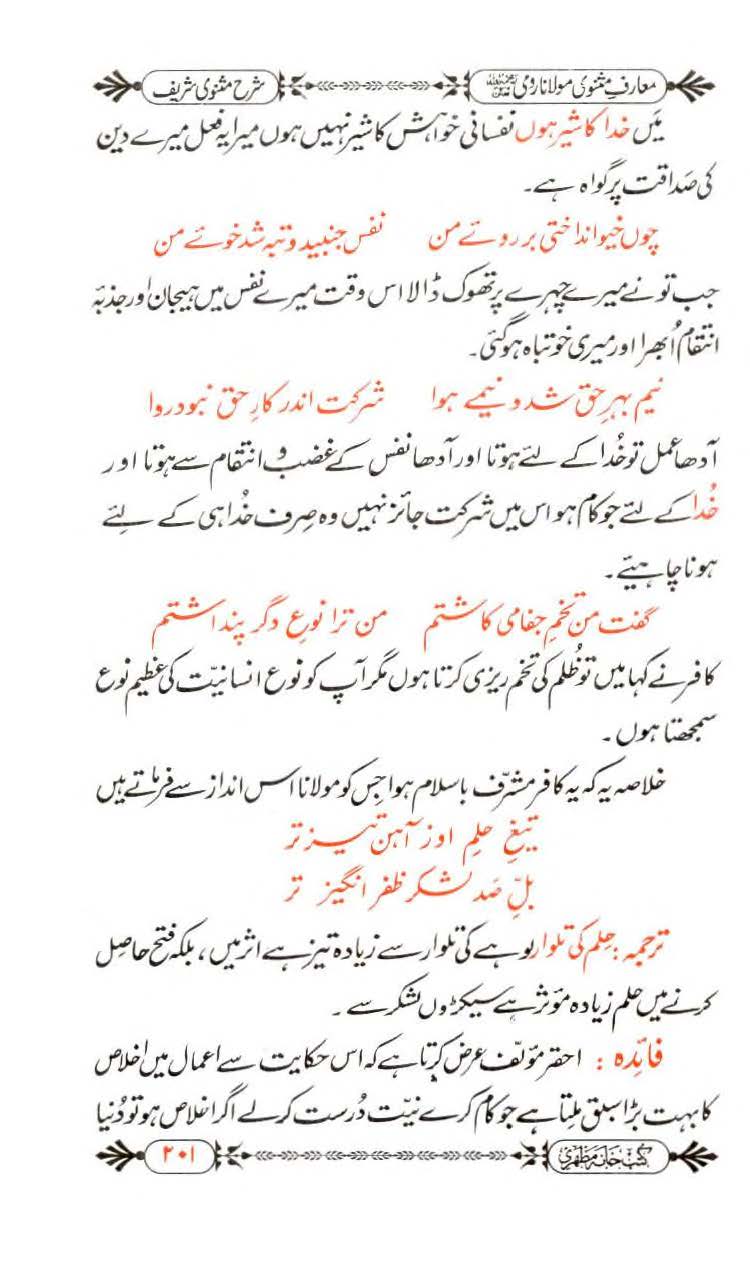 معارفِ مثنوی مولانا رومی رحمۃ اللہ علیہ شرح مثنوی شریف
میں خدا کا شیر ہوں نفسانی خواہش کا شیر نہیں ہوں میرا یہ فعل میرے دین
کی صداقت پر گواہ ہے۔
چوں خیو انداختی بر روئے من نفس جنبید و تبہ شد خوئے من
جب تو نے میرے چہرے پر تھوک ڈالا اس وقت میرے نفس میں ہیجان اور جذبۂ
انتقام اُبھرا اور میری خو تباہ ہوگئی۔
نیم بہرِ حق شد و نیمے ہوا شرکت اندر کارِ حق نبود روا
آدھا عمل تو خُدا کے لئے ہوتا اور آدھا نفس کے غضب و انتقام سے ہوتا اور
خُدا کے لئے جو کام ہو اس میں شرکت جائز نہیں وہ صِرف خُدا ہی کے لئے
ہونا چاہیئے۔
گفت من تخمِ جفا می کاشتم من ترا نوعِ دگر پنداشتم
کافر نے کہا میں تو ظُلم کی تخم ریزی کرتا ہوں مگر آپ کو نوع انسانیّت کی عظیم نوع
سمجھتا ہوں۔
خلاصہ یہ کہ یہ کافر مشرّف باسلام ہوا جِس کو مولانا اس انداز سے فرماتے ہیں
تیغِ حِلم او ز آہن تیز تر
بلِّ صَد لشکر ظفر انگیز تر
ترجمہ: حِلم کی تلوار لوہے کی تلوار سے زیادہ تیز ہے اثر میں، بلکہ فتح حاصِل
کرنے میں حلم زیادہ مؤثر ہے سیکڑوں لشکر سے۔
فائدہ: احقر مؤلّف عرض کرتا ہے کہ اس حکایت سے اعمال میں اخلاص
کا بہت بڑا سبق مِلتا ہے جو کام کرے نیّت دُرست کرلے اگر اخلاص ہو تو دُنیا
کتب خانہ مظہری ۲۰۱